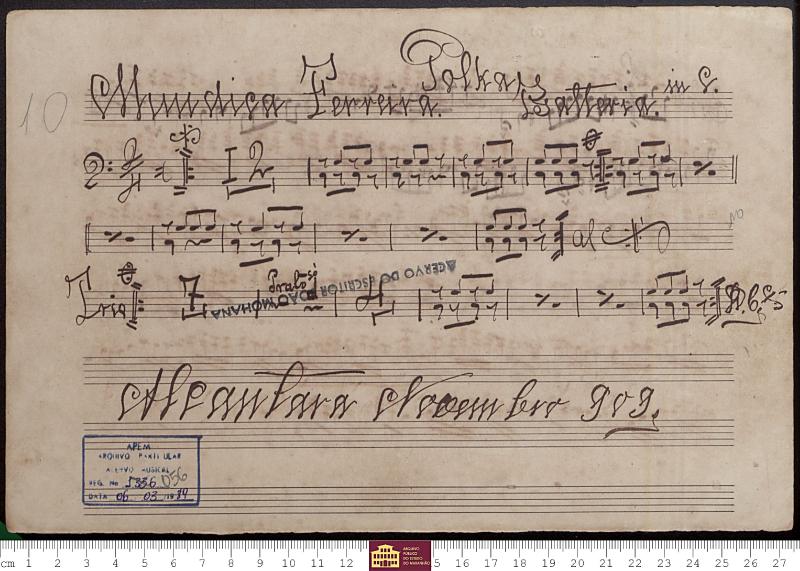 10
Polka
Mundica Ferreira. Batteria. in C.
12
al
Trio 7 Pratos só 4 D.C.
ACERVO DO ESCRITOR JOÃO MOHANA
Alcantara Novembro 909.
APEM
ARQUIVO PARTICULAR
ACERVO MUSICAL
REG. No 5336 056
DATA 06 03
cm 1 2 3 4 5 6 7 8 9 10 11 12 5 16 17 18 19 20 21 22 23 24 25 26 27
ARQUIVO
PÚBLICO
DO ESTADO
DO MARANHÃO